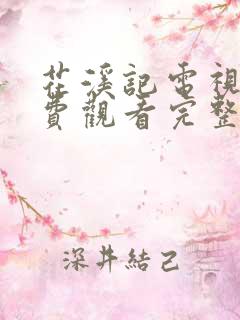 茳溪記電視
費觀看完整
深井結己